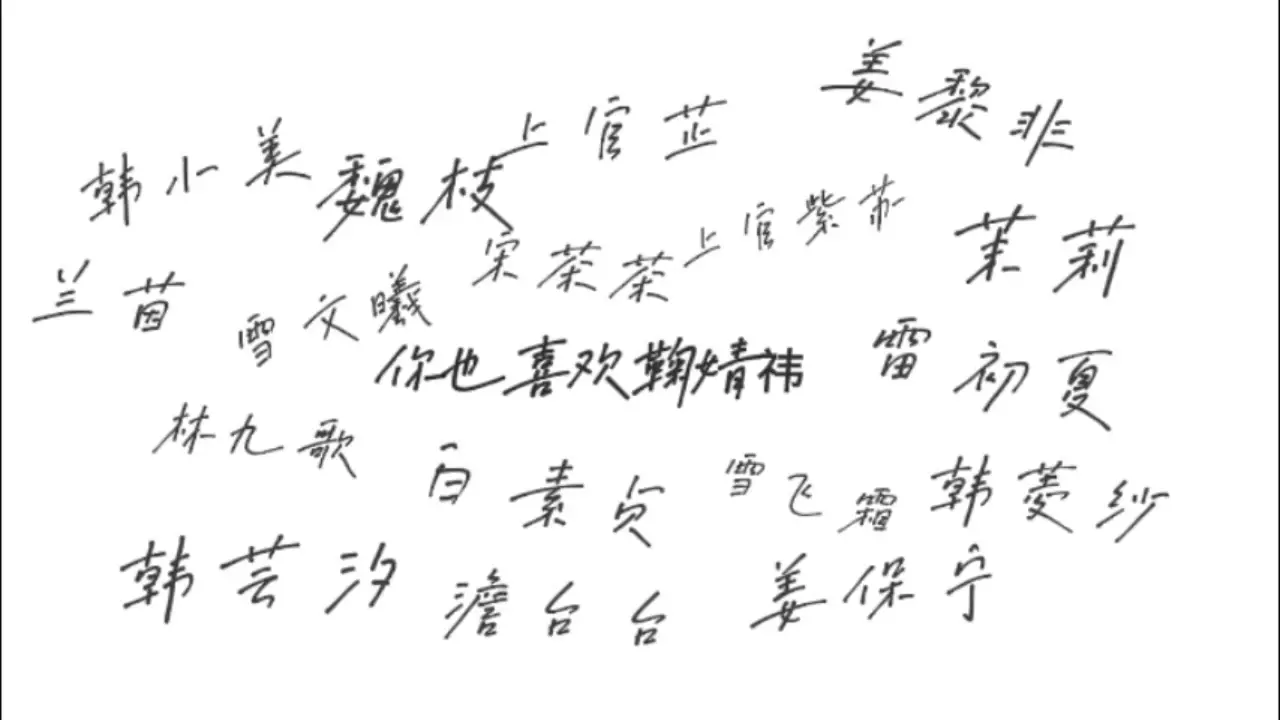 姜黎非
上官芷
韩小美
魏枝
上官紫苏
宋茶茶
茉莉
兰茵
雪文曦
你也喜欢鞠婧祎
雷初夏
林九歌
白素贞
雪飞霜
韩菱纱
韩芸汐
澹台台
姜保宁